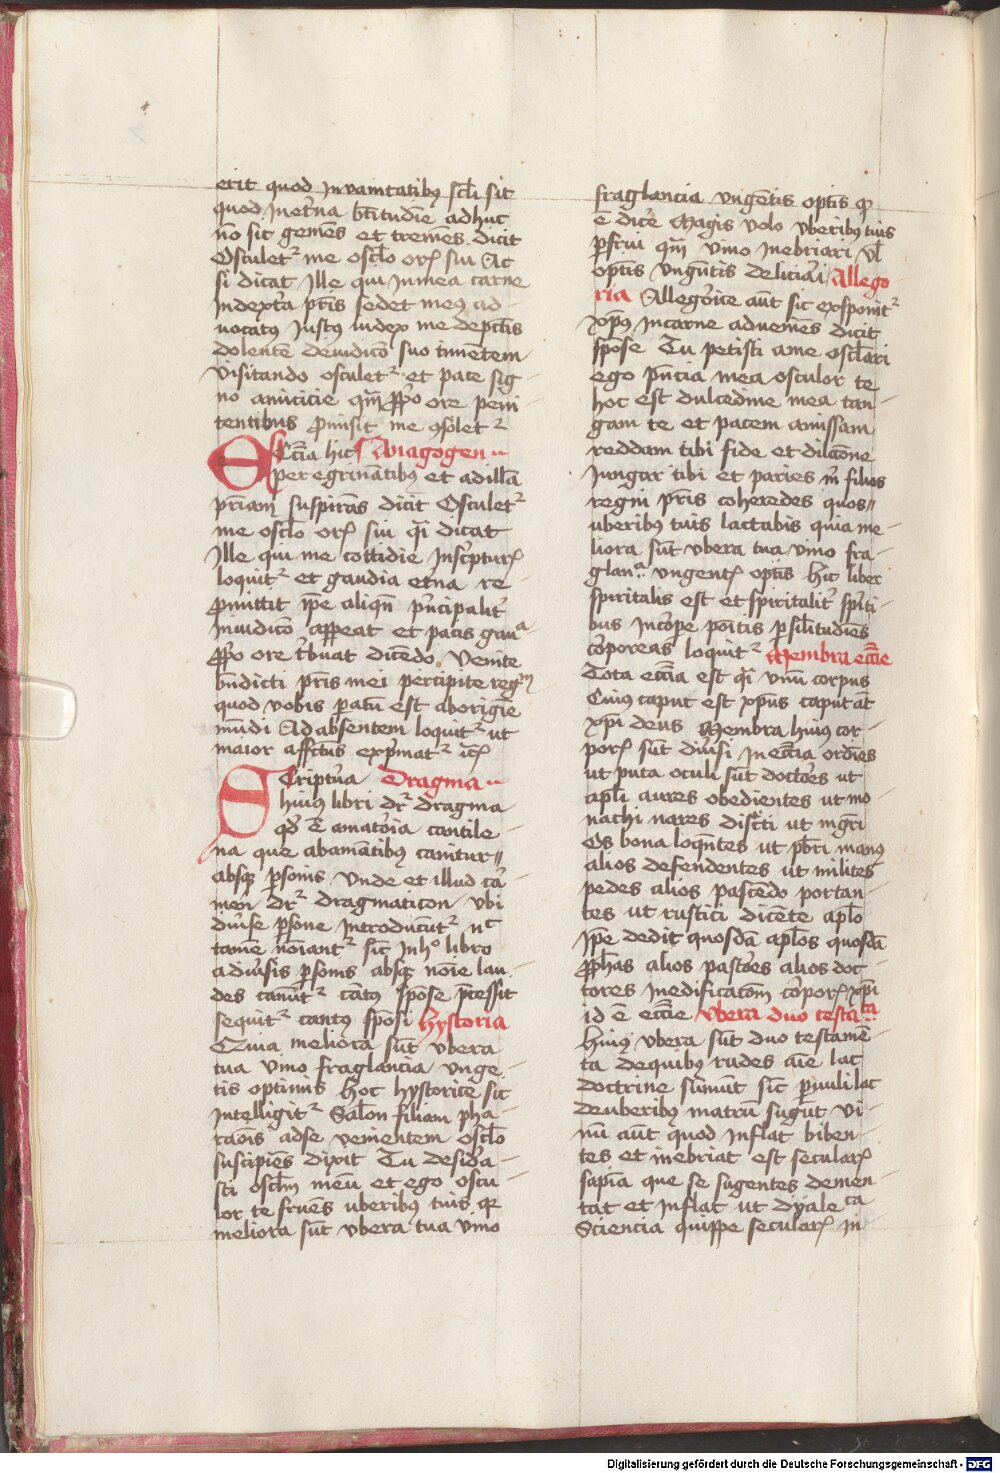 erit quod in vanitatibꝯ scl̄i sit
quod in et̾na btītudīe adhuc
nō sit gemēs et tremēs dicit
Osculetᷣ me osc̄lo orꝭ sui Ac
si dicat Ille qui in mea carne
in dext̾a pr̄is sedet meꝯ ad-
uocatꝯ iustꝯ iudex me de pctīs
dolentē de iudic̄o suo timentem
visitando osculetᷣ et pace sig-
no amiticie qm̄ ꝓp̄o ore peni-
tentibus ꝓmisit me ꝯsoletᷣ
Ecc̄ia hic Sinagogen
peregrinātibꝯ et ad illā
pr̄iam suspirās dicit Osculetᷣ
me osc̄lo orꝭ sui q̄i dicat
Ille qui me cottidie in sc̾pturꝭ
loquitᷣ et gaudia et̄na re-
ꝓmittit ip̄e aliqn̄ p̾ncipalit̾
in iudic̄o appeat et pacis gauᵃ
ꝓp̄o ore t̾buat dicēdo Venite
bn̄dicti pr̄is mei percipite regᵐ
quod vobis patū est ab origīe
mūdi Ad absentem loquitᷣ ut
maior affc̄tus exp̾matᷣ
Script̾a Dragma
huiꝯ libri drᷣ dragma
qd̾ ē amato̾ia cantile-
na que ab amātibꝯ canitur
absqꝫ ꝑsonis Vnde et illud ca̾-
men drᷣ dragmaticon vbi
diu̾se ꝑsone introducūtᷣ nᶜ
tamē noīantᷣ sic̄ in hᵒ libro
a diu̾sis ꝑsonis absqꝫ noīe lau-
des canūtᷣ cātꝯ spōse p̾cessit
sequitᷣ cantꝯ spōsi Hystoria
Quia meliora sūt vbera
tua vino fraglancia vnge-
tis optimis Hoc hystorice sic
intelligitᷣ Salōn filiam pha-
raōis ad se venientem osc̄lo
suscipiēs dixit Tu deside̾a-
sti osc̄lm meū et ego oscu-
lor te fruēs uberibꝯ tuis qꝛ
meliora sūt vbera tua vino
fraglancia vngētis optīs qd̾
ē dice̾ Magis volo vberibꝯ tuis
ꝑfrui qm̄ vino inebriari vl̄
optīs vngn̄tis deliciari Allego-
ria Allego̾ice aūt sic exsponitᷣ
xp̄us in carne adueniēs dicit
spōse Tu petisti a me osc̄lari
ego pn̄cia mea osculor te
hoc est dulcedine mea tan-
gam te et pacem amissam
reddam tibi fide et dilc̄one
iungar tibi et paries m̾ filios
regni pr̄is coheredes quos
uberibꝯ tuis lactabis quia me-
liora sūt vbera tua vino fra-
glanᵃ vngentꝭ optīs hic liber
spiritalis est et spiritalit̾ sp̄iti-
bus in co̾pe poītis ꝑ sil̄itudīes
co̾poreas loquitᷣ Membra ecc̄ie
Tota ecc̄ia est q̄i vnū corpus
Cuiꝯ caput est xp̄us caput āt
xp̄i deus Membra huiꝯ cor-
porꝭ sūt diu̾si in ecc̄ia ordīes
ut puta oculi sūt docto̾es ut
apl̄i aures obedientes ut mo-
nachi nares disc̾ti ut mgr̄i
Os bona loqn̄tes ut pb̄ri manꝯ
alios defendentes ut milites
pedes alios pascēdo portan-
tes ut rustici dicēte apl̄o
Ip̄e dedit quosdā apl̄os quosdā
ꝓph̄as alios pasto̾es alios doc-
tores in edificatōm co̾porꝭ xp̄i
id ē ecc̄ie Vbera duo testaᵗᵃ
Huiꝯ vbera sūt duo testamē-
ta de quibꝯ rudes aīe lac
doctrine sumūt sic̄ ꝑuuli lac
de uberibꝯ matrū sugūt Vi-
nū aūt quod inflat biben-
tes et inebriat est secularꝭ
sapīa que se sugentes demen-
tat et inflat ut dyaleᶜᵃ
Sciencia quippe secularꝭ in-
Digitalisierung gefördert durch die Deutsche Forschungsgemeinschaft - DFG